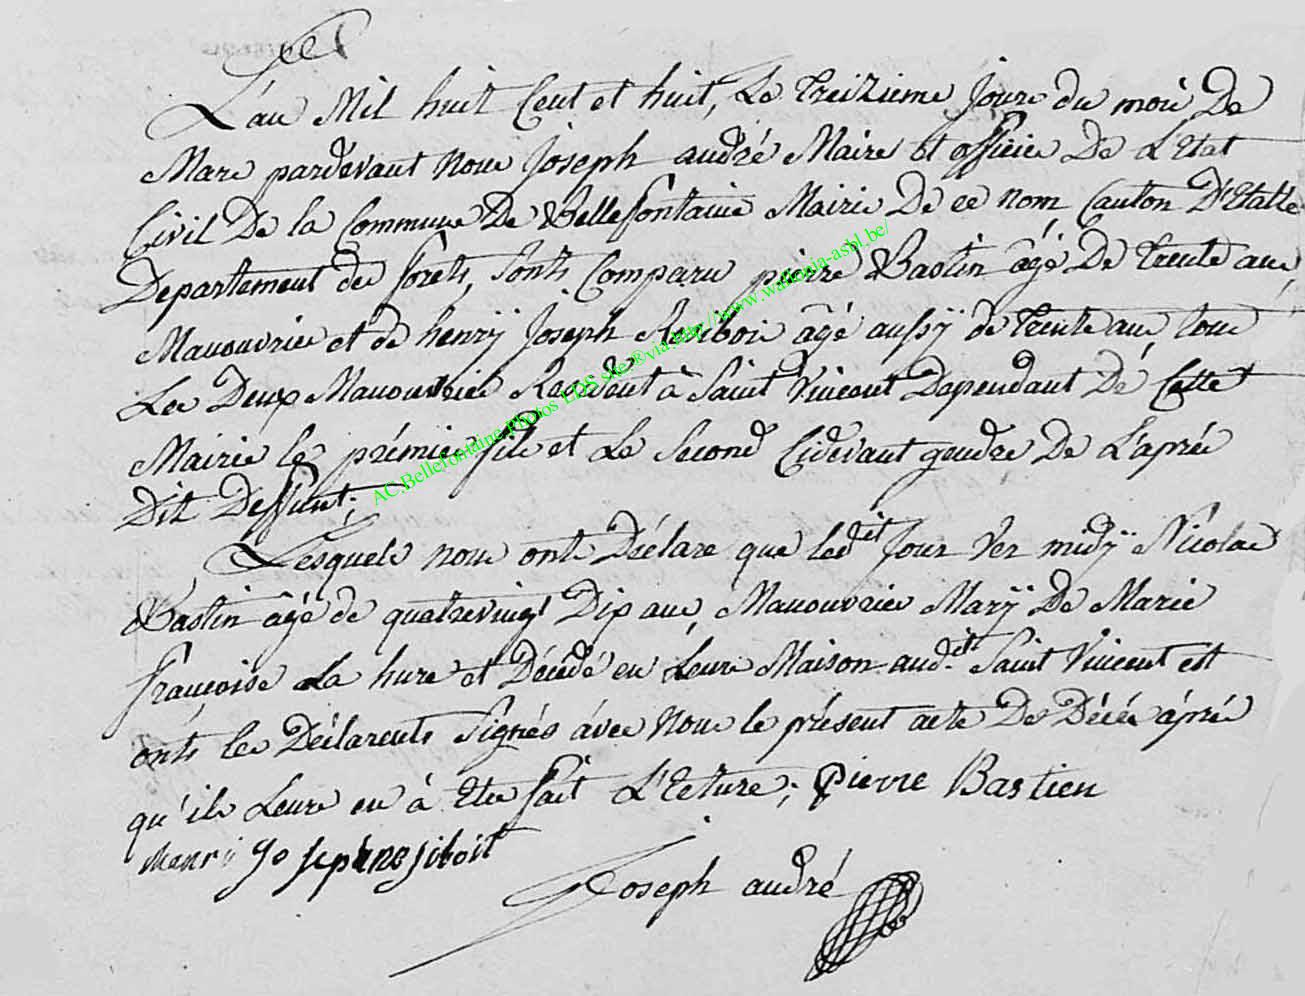 L'an Mil huit Cent et huit, Le Treizieme Jour du moi De
Mars pardevant nous Joseph andré Maire Et officie De L'Etat
Civil De la Commune De Bellefontaine Mairie De ce nom Canton D'Etalle
Departement des forets, Sonts Comparu pierre Bastin âgé De Trente ans,
Manouvrie et de henrÿ Joseph âgé aussÿ de Trente ans, tous
Les Deux Manouvrie Residant à Saint Vincent Dependant De Cette
Mairie le prémier fils et Le Second Cidevant gendre De L'après
Dit Deffunt;
Lesquels nous onts Déclare que ledit Jour Ver midÿ Nicolas
Bastin âgé de quatrevingt Dix ans, Manouvrier Marÿ De Marie
françoise La hure et Décédé en Leurs Maison audit Saint Vincent est
onts les Déclarents Signés avec Nous le présent acte De Décés áprés
qu'ils Leurs en à Ete fait L'Ecture; Pierre Bastien
Henri Joseph nosiboit
Joseph andré
AC.Bellefontaine.Photos LDS site ®via http://www.wallonia-asbl.be/